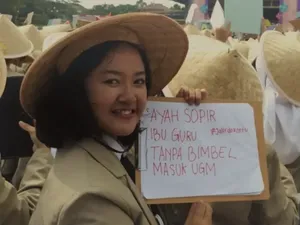 AYAH SOPIR
IBU GURU
TANPA BIMBEL
MASUK UGM